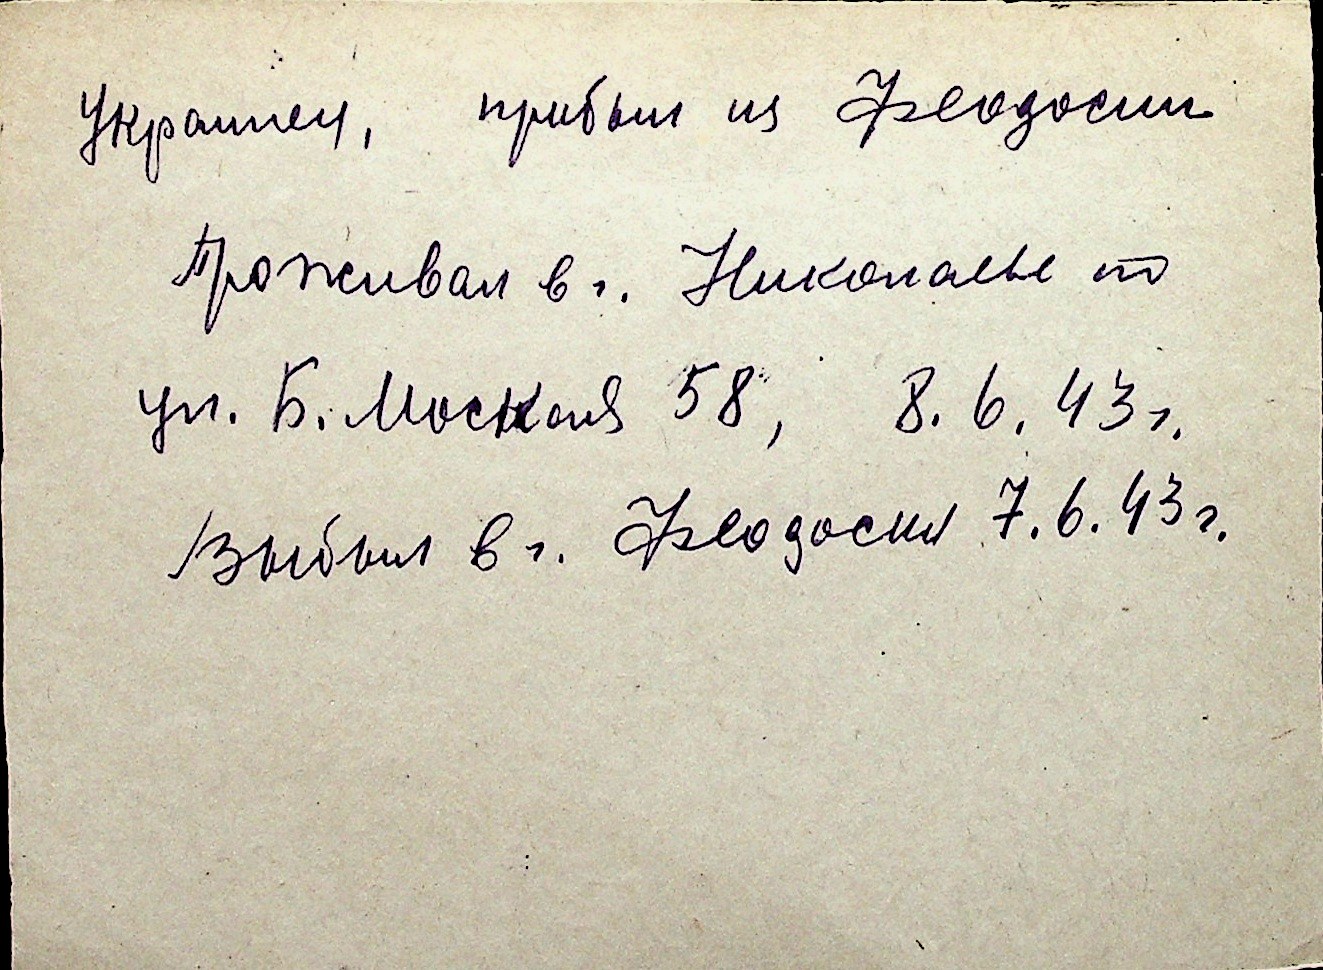 Украинец, прибыл из Феодосии
Проживал в г. Николаеве по
ул. Б.Морская 58, 8.6.43 г.
Выбыл в г. Феодосия 7.6.43 г.